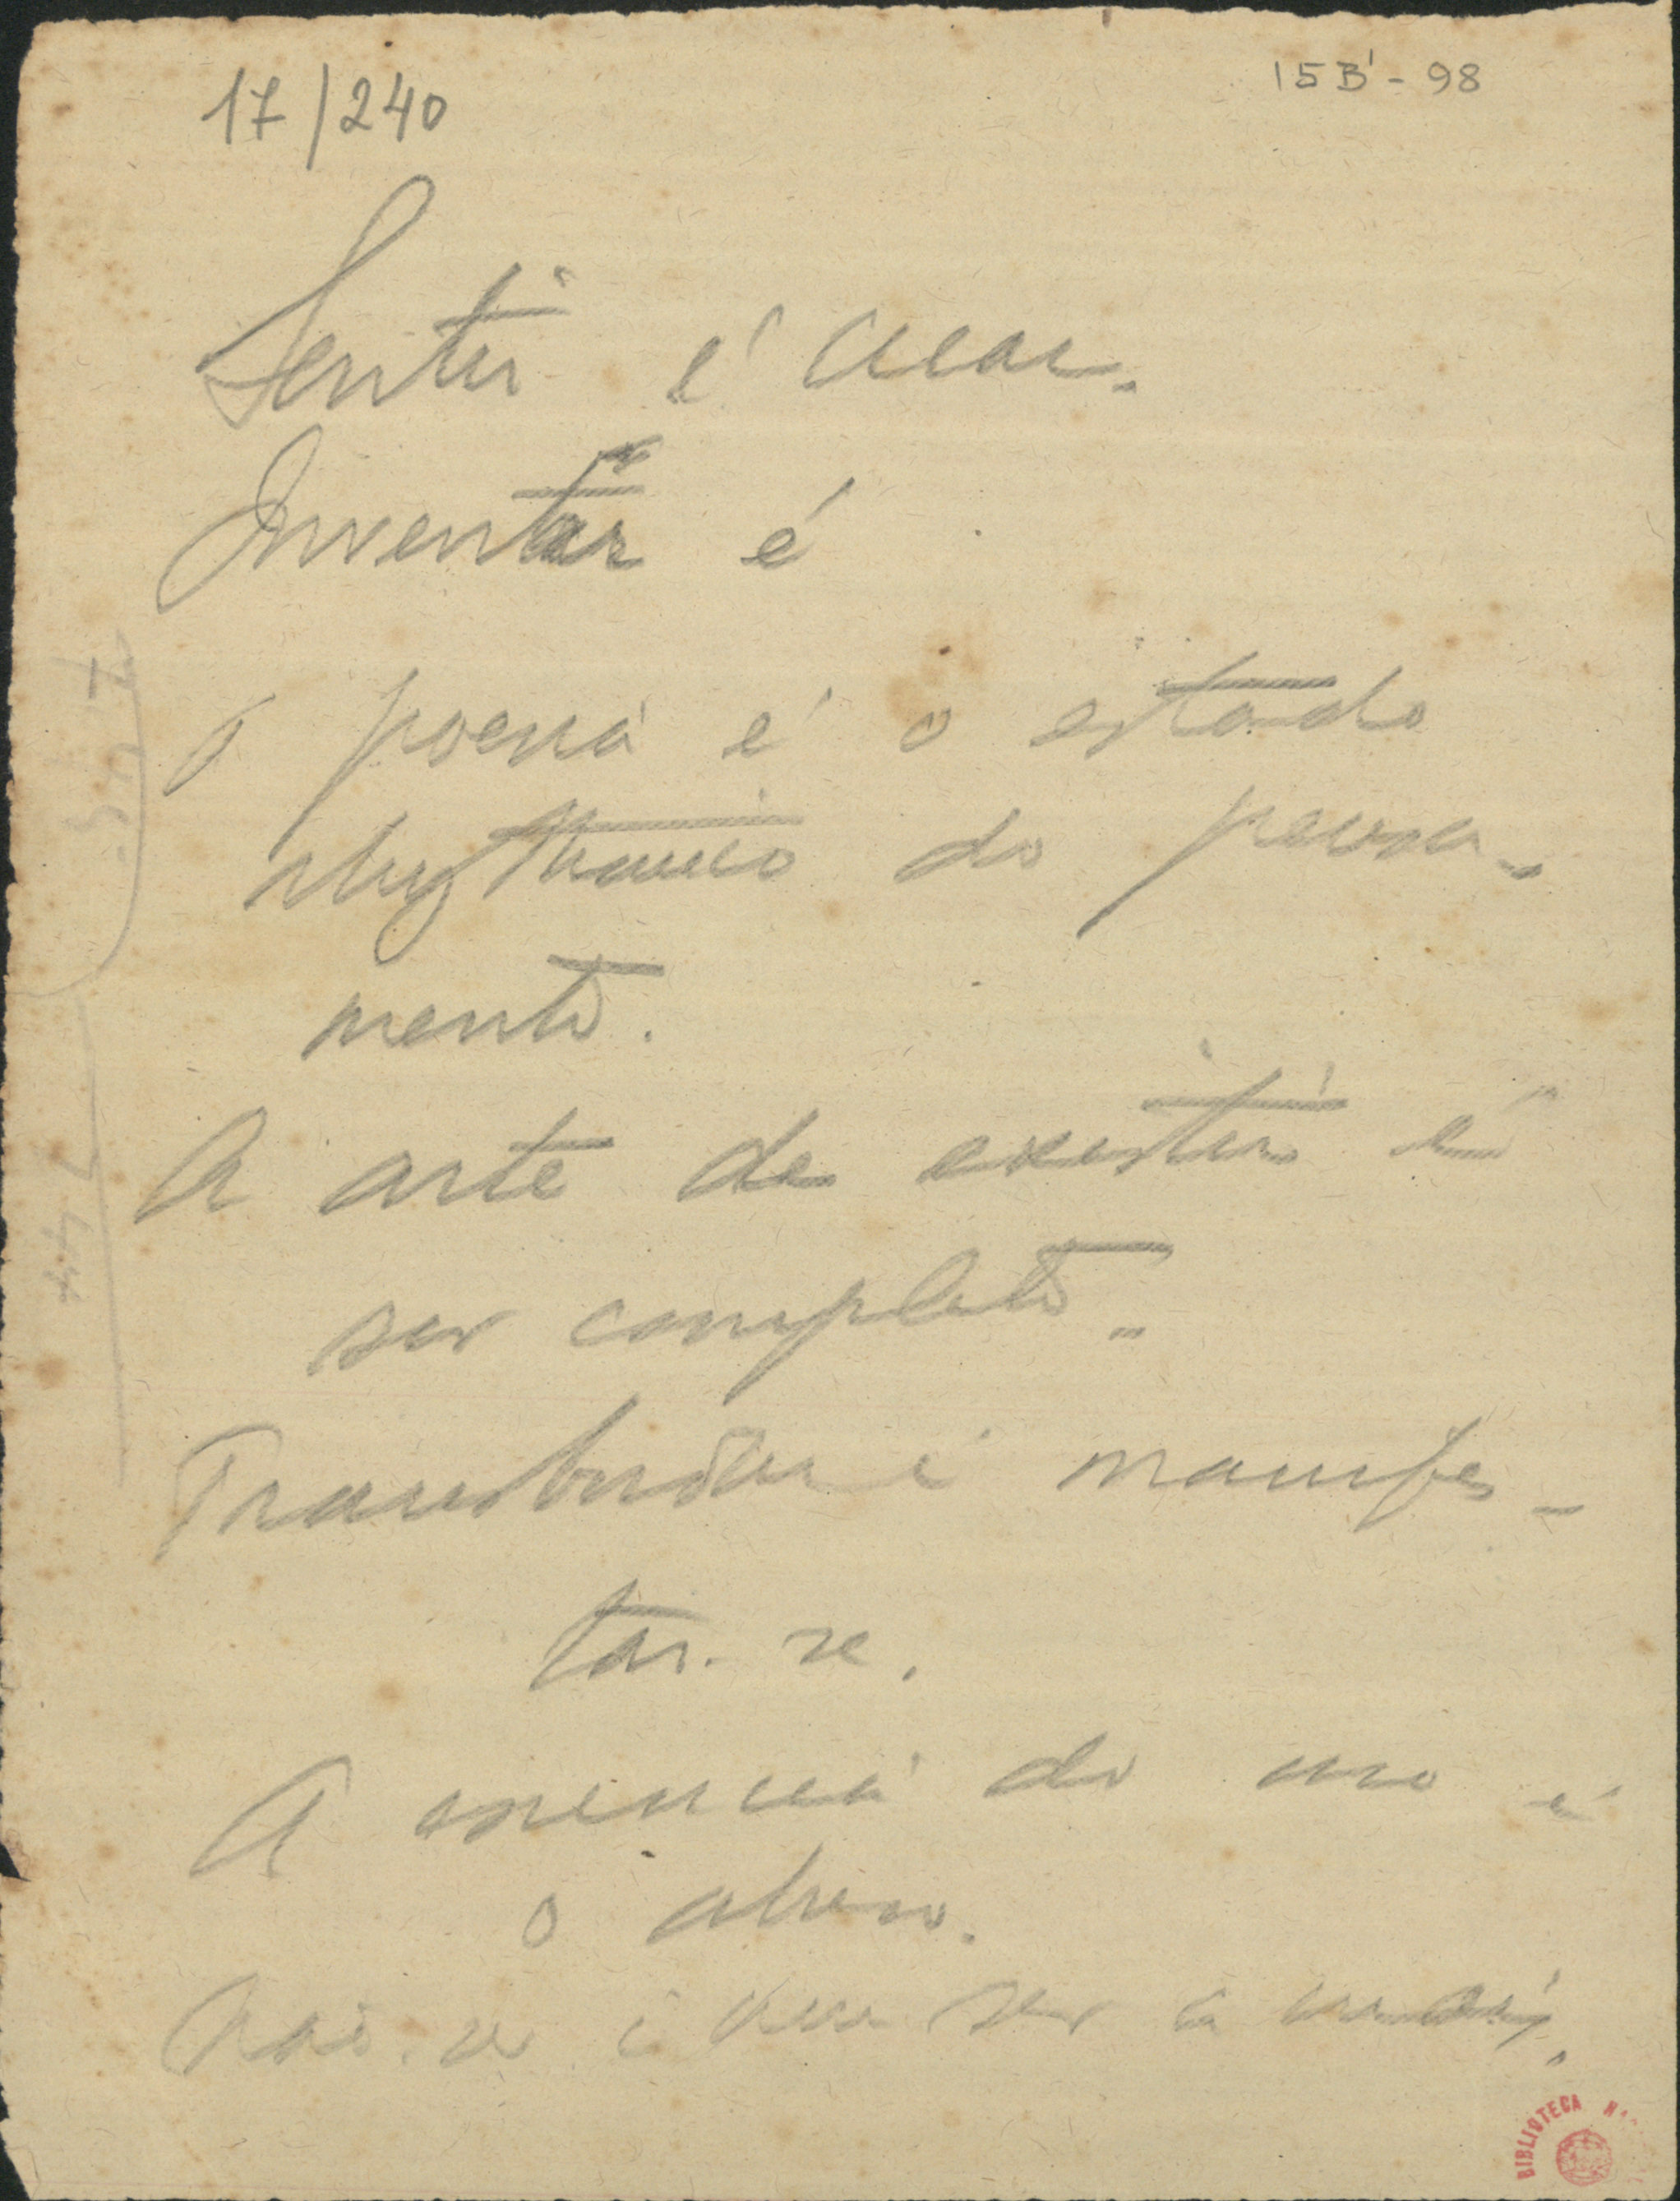 17/240
15B¹ - 98
Sentir é crear.
Inventar é
O poema é o estado
rhythmico do pensa-
mento.
A arte de existir é
ser completo.
Transbordar é manifes-
tar-se.
A essencia do uso é
o abuso.
Não ser é ser
BIBLIOTECA